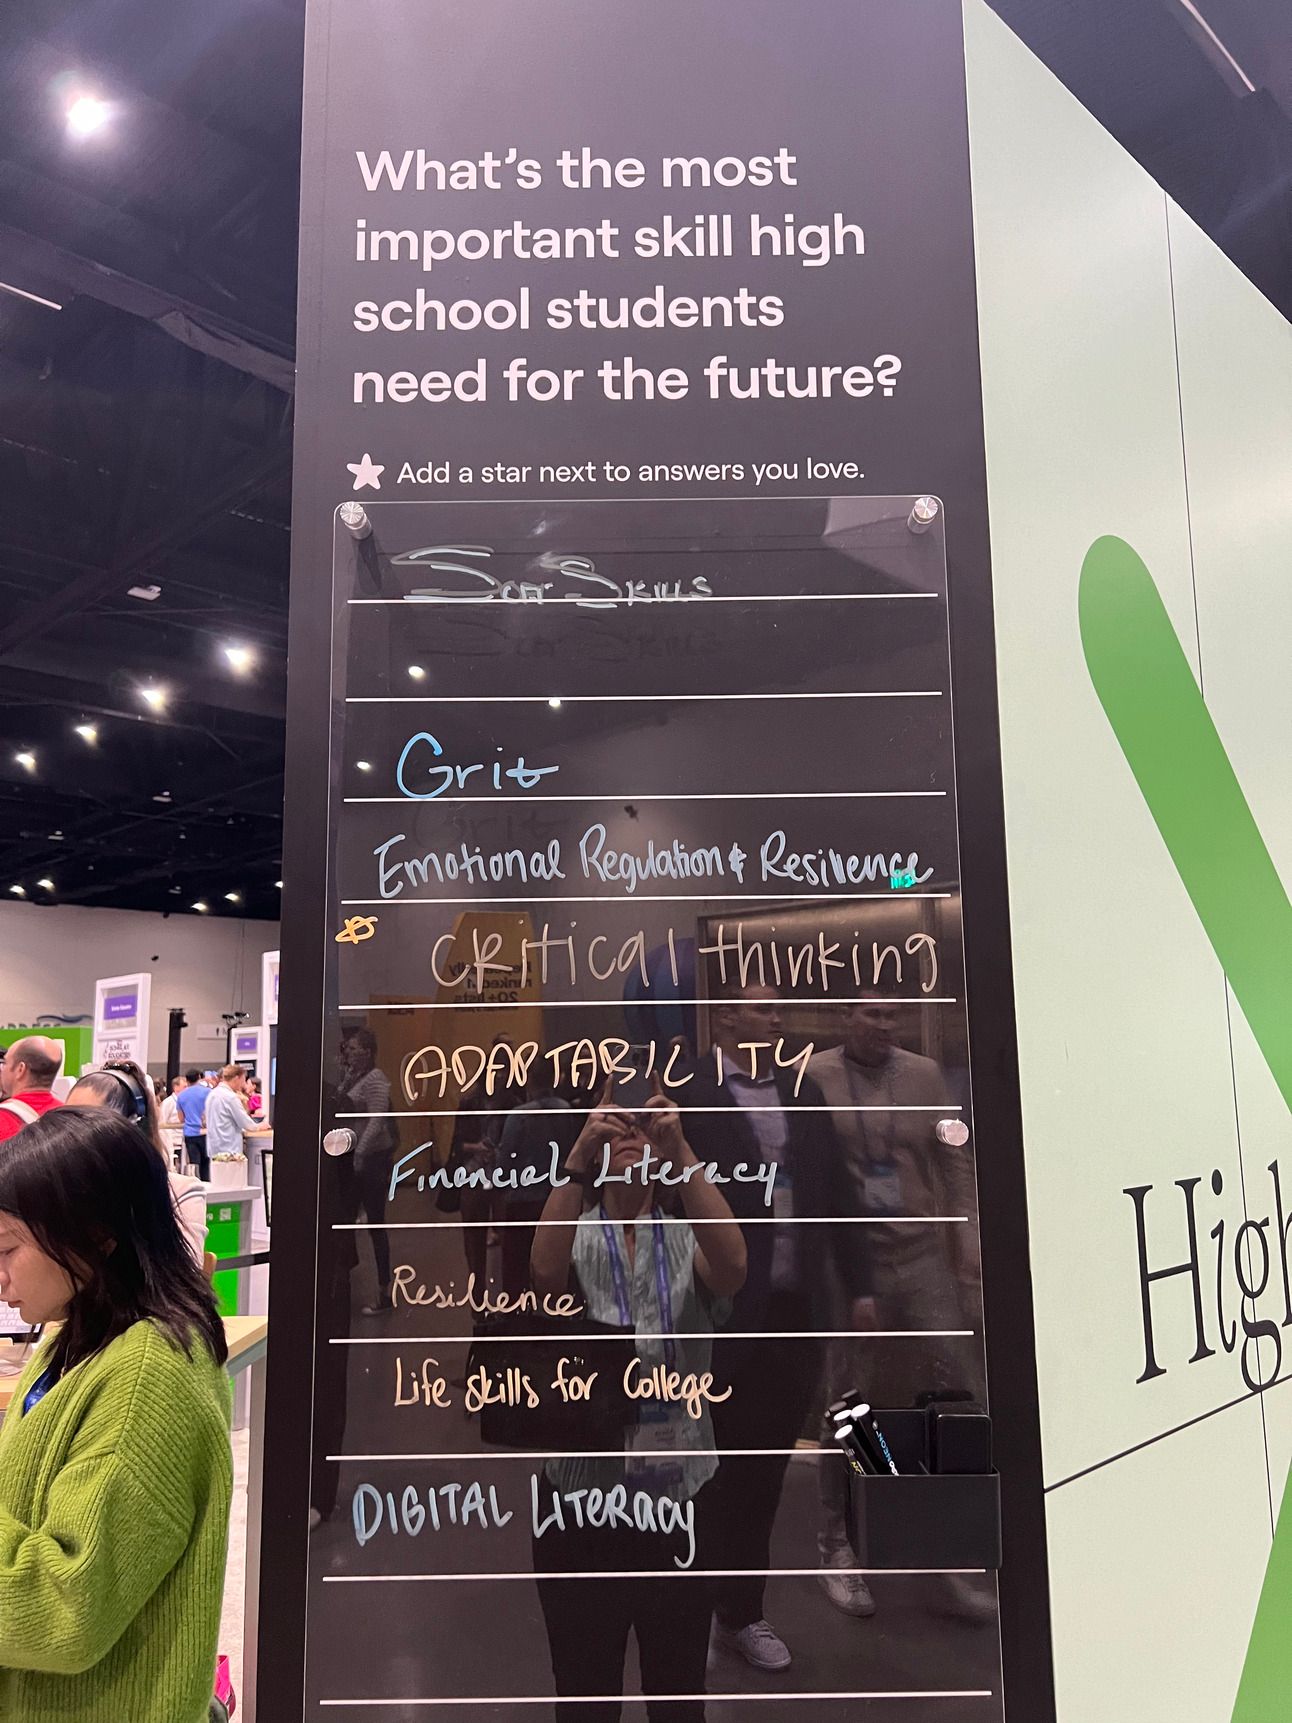 What's the most
important skill high
school students
need for the future?
Add a star next to answers you love.
Soft Skills
Grit
Emotional Regulation & Resilience
Critical thinking
ADAPTABILITY
Financial Literacy
Resilience
Life skills for College
DIGITAL LITERACY
High